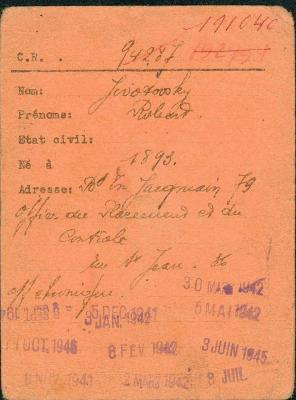 191040
C.R. . 94287
Nom: Jivotovsky
Prénoms: Robert
Etat civil:
Né à 1893.
Adresse: Bd Em Jacqmain 79
Office du Placement et du
Contrôle
rue St Jean. 36
30 MARS 1942
5 DEC 1941
3 JAN. 1942
5 MAI 1942
OCT. 1946
8 FEV 1942
3 JUIN 1945
NOV. 1941
2 MARS 1942
8 JUIL.